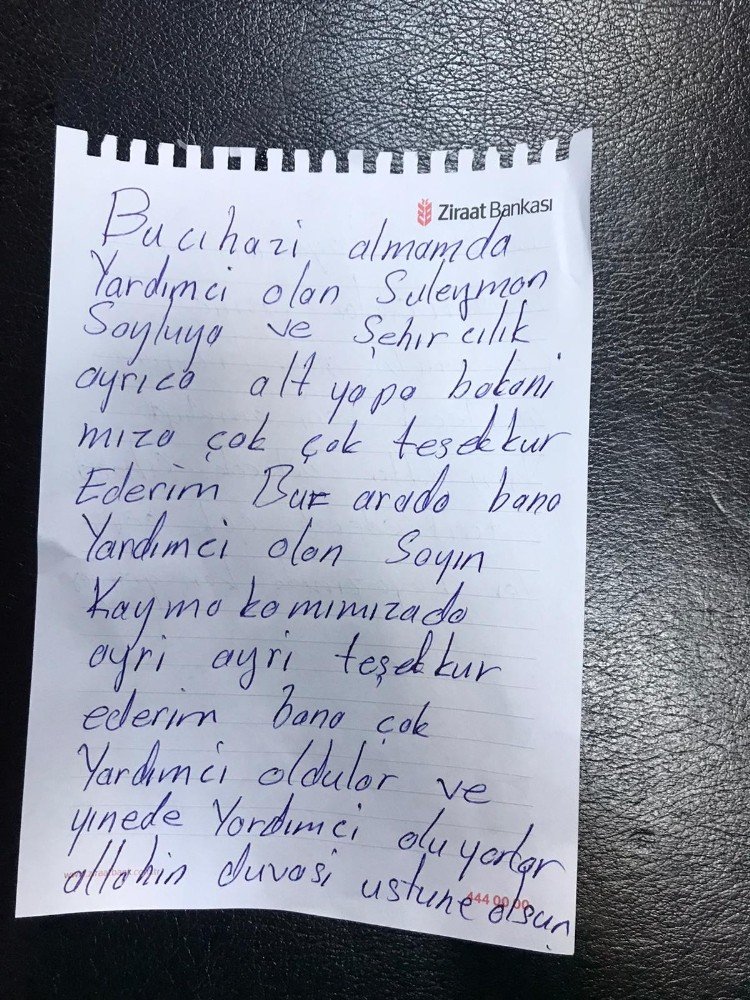 Ziraat Bankası
Bu cıhazi almamda
Yardımci olan Suleyman
Soyluya ve Şehırcılık
ayrıca alt yapa bakani
mıza çok çok teşekkur
Ederim Bu arada bana
Yardımci olan Sayın
Kaymakamımızada
ayri ayri teşekkur
ederim bana çok
Yardımci oldular ve
yınede Yardımci oluyorlar
allahin duvasi ustune olsun
444 00 00